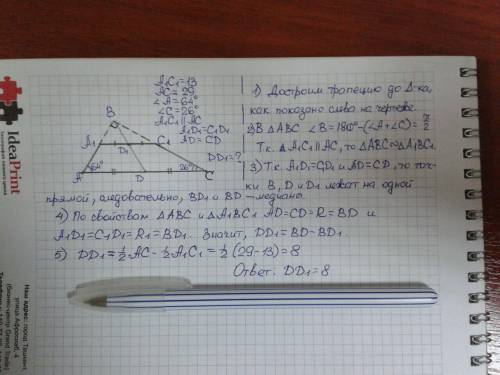 A1C1=13
AC=29
∠A=64°
∠C=26°
A1C1 || AC
A1D1=C1D1
AD=CD
DD1=?
B
A1
D1
C1
64°
26°
A
D
C
1) Достроим трапецию до Δ-ка,
как показано слева на чертеже.
2) В ΔABC ∠B=180°-(∠A+∠C)=π/2
Т.к. A1C1 || AC, то ΔABC∾ΔA1BC1
3) Т.к. A1D1=C1D1 и AD=CD, то точ-
ки B, D и D1 лежат на одной
прямой, следовательно, BD1 и BD – медианы.
4) По свойствам ΔABC и ΔA1BC1 AD=CD=R=BD и
A1D1=C1D1=R1=BD1. Значит, DD1=BD-BD1.
5) DD1=1/2 AC-1/2 A1C1=1/2(29-13)=8
Ответ: DD1=8
IdeaPrint
Наш адрес: город Ташкент,
улица Афросиаб, 4
(бизнес-центр Grand Trade)